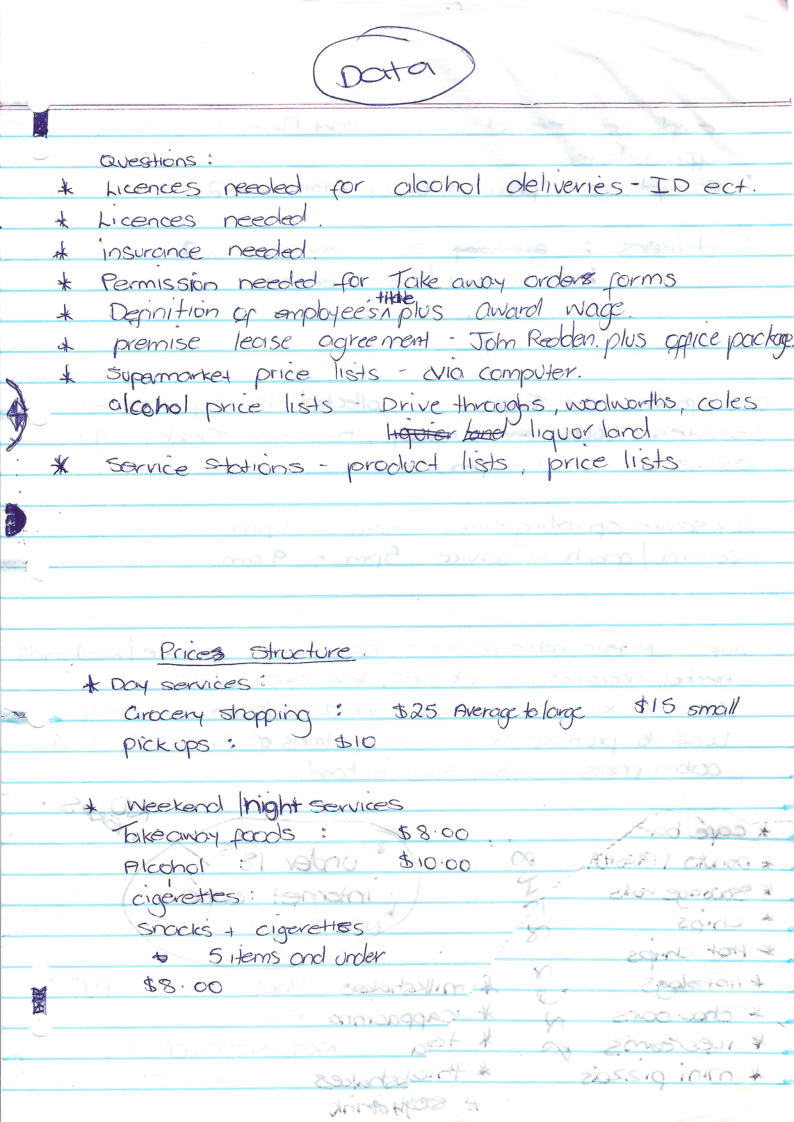 Data
Questions :
* Licences needed for alcohol deliveries - ID ect.
* Licences needed.
* insurance needed.
* Permission needed for Take away orders forms
title
* Definition of employees ^ plus award wage.
* premise lease agreement - John Redden. plus office package.
* Supermarket price lists - via computer.
alcohol price lists - Drive throughs, woolworths, coles
liquor land
* Service Stations - product lists, price lists
Prices Structure.
* Day services :
Grocery shopping : $25 Average to large $15 small
pick ups : $10
* Weekend / night services
Takeaway foods : $8.00
Alcohol : $10.00
cigerettes :
Snacks + cigerettes
5 items and under
$8.00